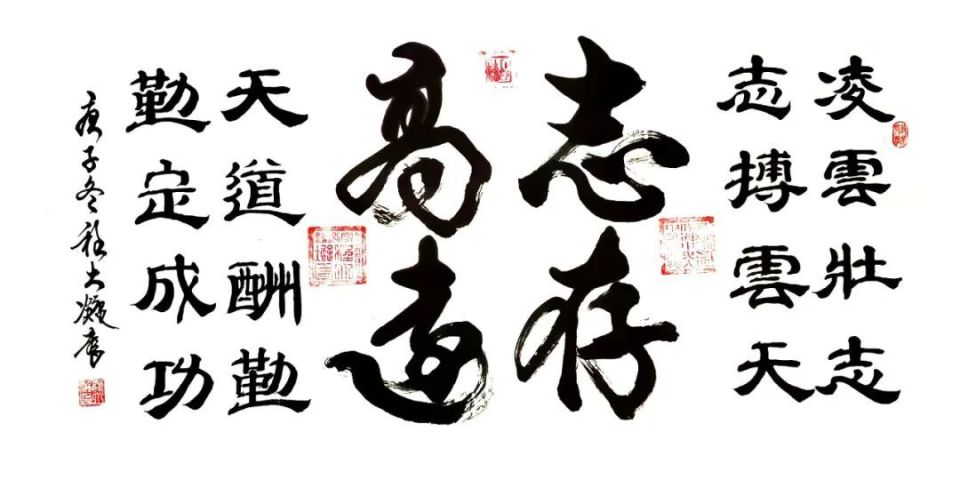 凌雲壯志
志搏雲天
志存
高遠
天道酬勤
勤定成功
庚子冬程大凝書